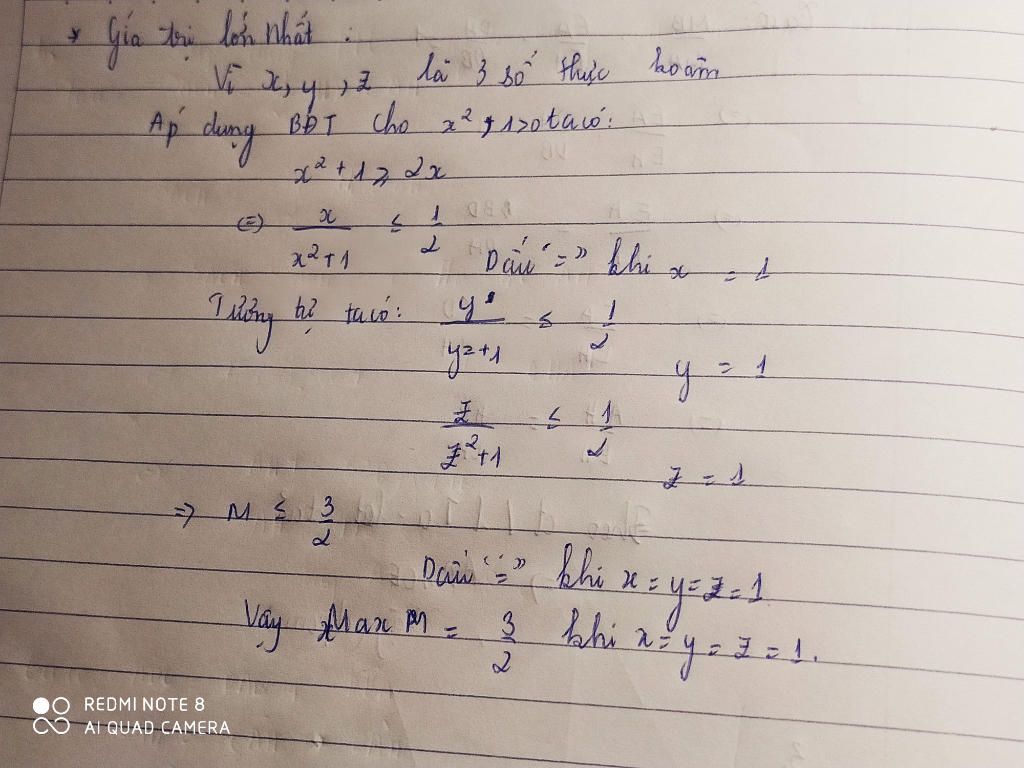 * Gía trị lớn nhất :
Vì x, y, z là 3 số thực ko âm
Áp dụng BĐT cho x² , 1>0 ta có:
x² + 1 ≥ 2x
(=) x/(x²+1) ≤ 1/2
Dấu "=" khi x = 1
Tương tự ta có: y/(y²+1) ≤ 1/2
y = 1
z/(z²+1) ≤ 1/2
z = 1
=> M ≤ 3/2
Dấu "=" khi x = y = z = 1
Vậy Max M = 3/2 khi x = y = z = 1.
REDMI NOTE 8
AI QUAD CAMERA